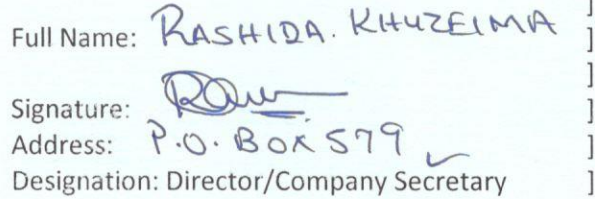 Full Name: RASHIDA. KHUZEIMA ]
]
]
Signature: ]
Address: P.O. BOX 579 ]
Designation: Director/Company Secretary ]